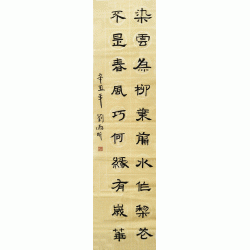 染雲為柳葉剪水作梨花
不是春風巧何緣有歲華
辛丑年 劉